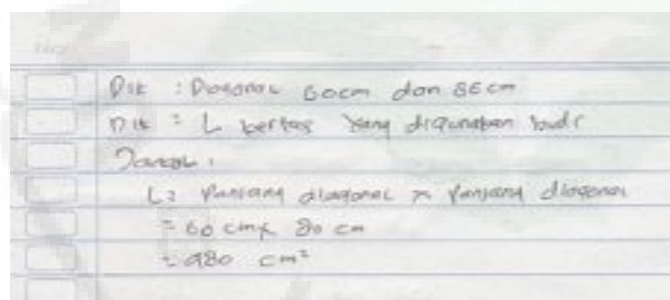 No:
Dik : Diagonal 60cm dan 80cm
Dit = L kertas yang digunakan budi
Jawab :
L = Panjang diagonal x Panjang diagonal
= 60 cm x 80 cm
= 480 cm²